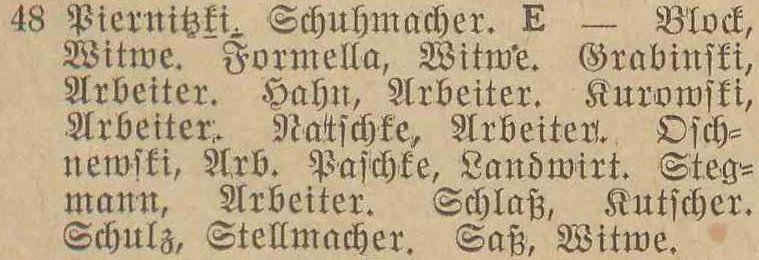 48 Piernitzki. Schuhmacher. E — Block,
Witwe. Formella, Witwe. Grabinski,
Arbeiter. Hahn, Arbeiter. Kurowski,
Arbeiter. Natschke, Arbeiter. Osch-
newski, Arb. Paschke, Landwirt. Steg-
mann, Arbeiter. Schlaß, Kutscher.
Schulz, Stellmacher. Saß, Witwe.